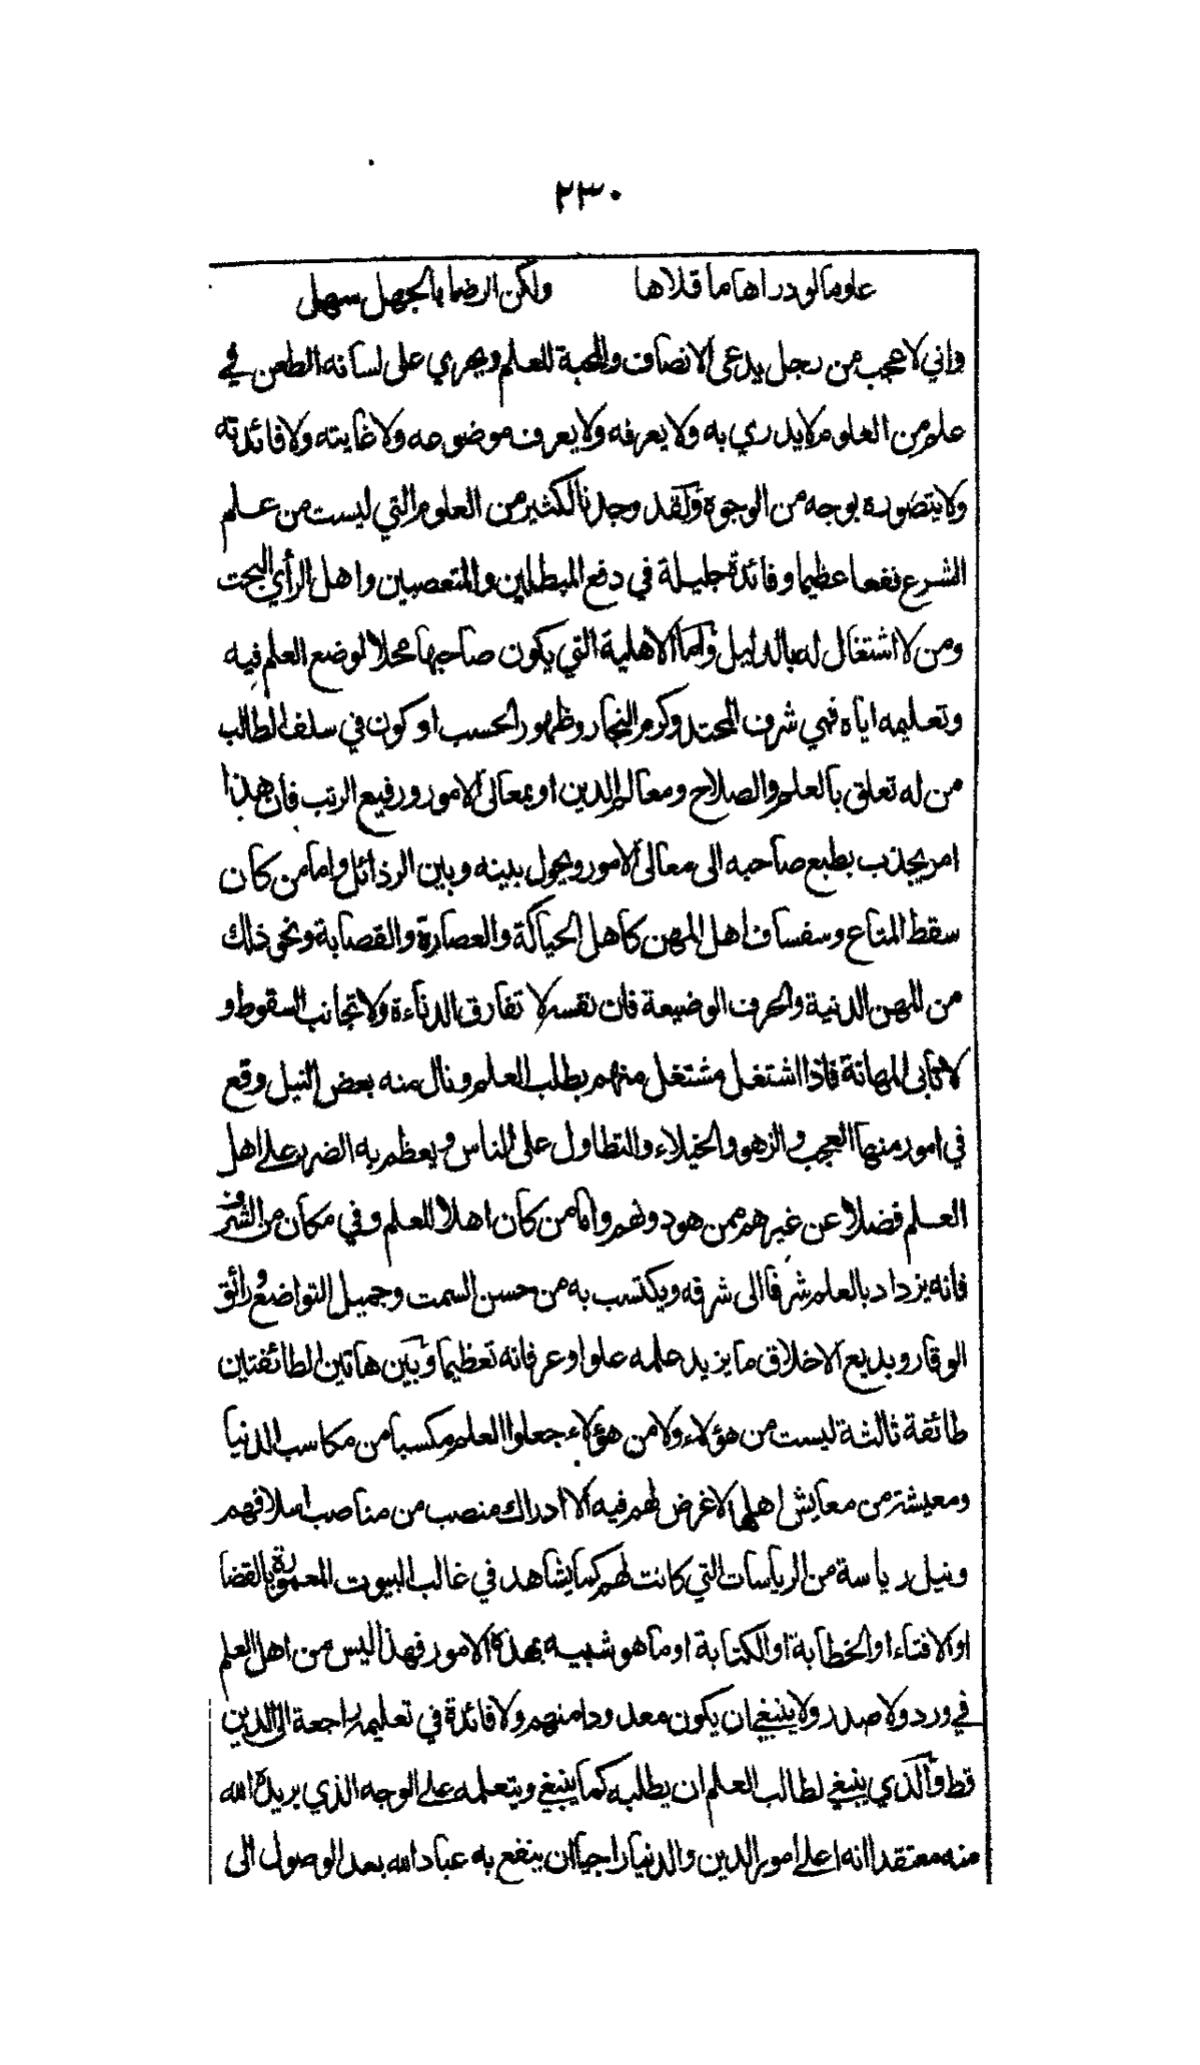 ٢٣٠
علوما لو دراها ما قلاها ولكن الرضا بالجهل سهل
واني لاعجب من رجل يدعى الانصاف والمحبة للعلم ويجري على لسانه الطعن في
علم من العلوم لا يدري به ولا يعرفه ولا يعرف موضوعه ولا غايته ولا فائدته
ولا يتصوره بوجه من الوجوه ولقد وجدنا لكثير من العلوم التي ليست من علم
الشرع نفعا عظيما وفائدة جليلة في دفع المبطلين والمتعصبين واهل الرأي البحت
ومن لا اشتغال له بالدليل وأما الاهلية التي يكون صاحبها محلا لوضع العلم فيه
وتعليمه اياه فهي شرف المحتد وكرم النجار وظهور الحسب او كون في سلف الطالب
من له تعلق بالعلم والصلاح ومعالم الدين او بمعالى الامور ورفيع الرتب فان هذا
امر يجذب بطبع صاحبه الى معالى الامور ويحول بينه وبين الرذائل واما من كان
سقط المتاع وسفساف اهل المهن كاهل الحياكة والعصارة والقصابة ونحو ذلك
من المهن الدنية والحرف الوضيعة فان نفسه لا تفارق الدناءة ولا تجانب السقوط و
لا تأبى المهانة فاذا اشتغل مشتغل منهم بطلب العلم ونال منه بعض النيل وقع
في امور منها العجب والزهو والخيلاء والتطاول على الناس ويعظم به الضرر على اهل
العلم فضلا عن غيرهم ممن هو دونهم واما من كان اهلا للعلم وفي مكان من الشرف
فانه يزداد بالعلم شرفا الى شرفه ويكتسب به من حسن السمت وجميل التواضع ورائق
الوقار وبديع الاخلاق ما يزيد علمه علوا وعرفانه تعظيما وبين هاتين الطائفتين
طائفة ثالثة ليست من هؤلاء ولا من هؤلاء جعلوا العلم مكسبا من مكاسب الدنيا
ومعيشة من معايش اهلها لا غرض لهم فيه الا ادراك منصب من مناصب اسلافهم
ونيل رياسة من الرياسات التي كانت لهم كما يشاهد في غالب البيوت المعمورة بالقضا
او الافتاء او الخطابة او الكتابة او ما هو شبيه بهذه الامور فهذا ليس من اهل العلم
في ورد ولا صدر ولا ينبغي ان يكون معدودا منهم ولا فائدة في تعليمه راجعة الى الدين
قط والذي ينبغي لطالب العلم ان يطلبه كما ينبغي ويتعلمه على الوجه الذي يريده الله
منه معتقدا انه اعلى امور الدين والدنيا راجيا ان ينفع به عباد الله بعد الوصول الى